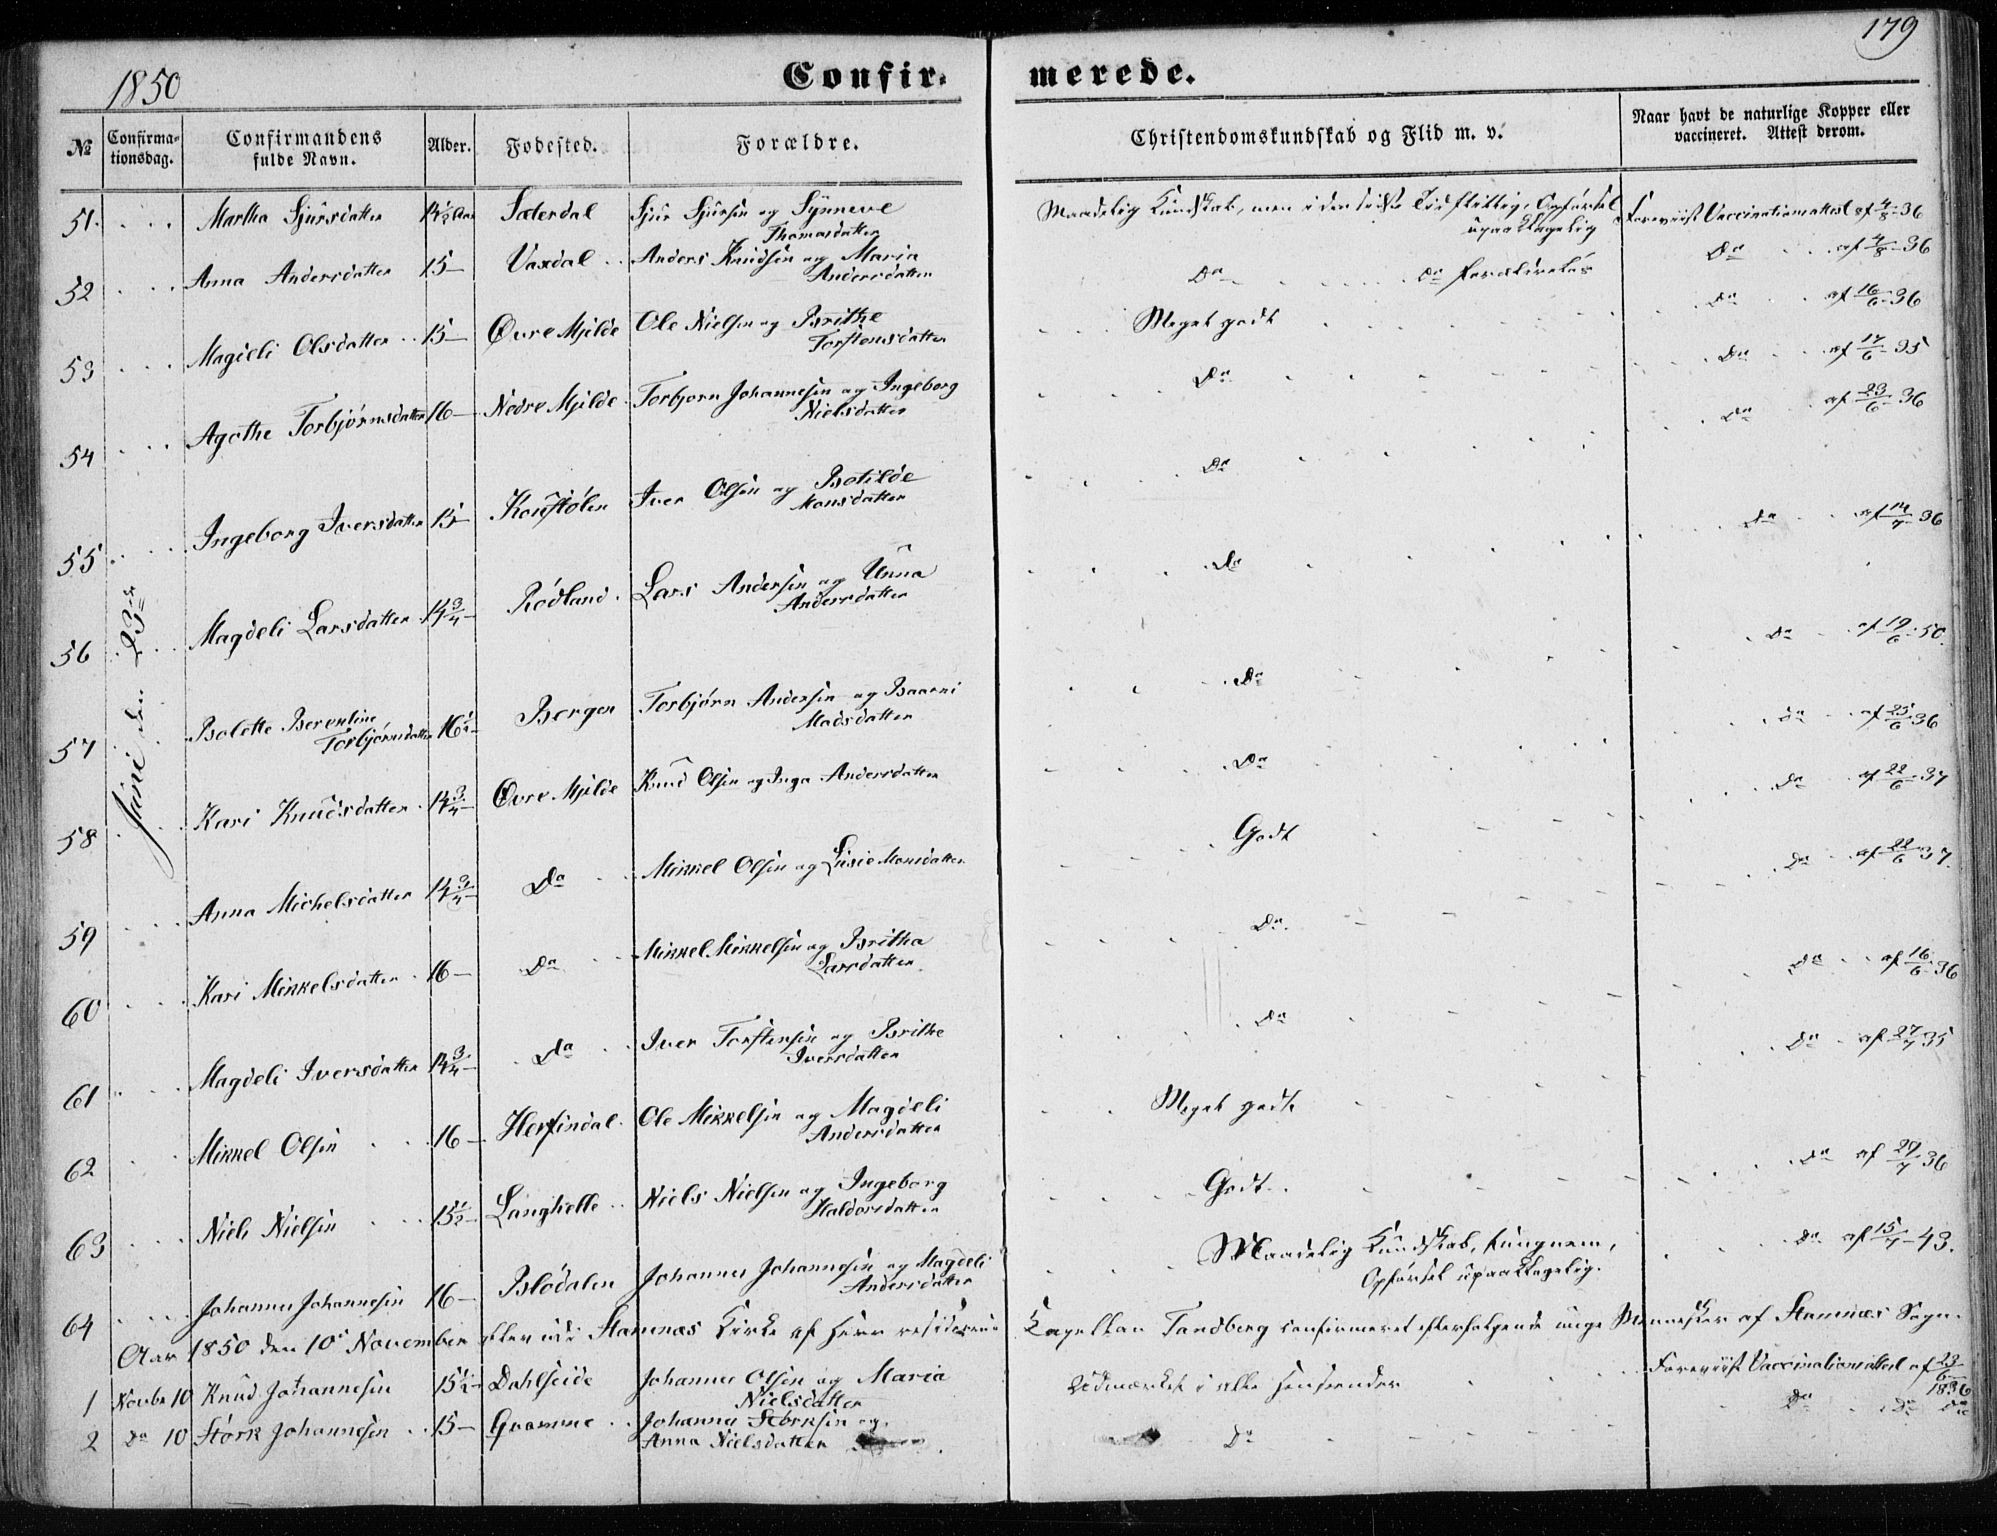 179
1850
Confir- merede.
№ Confirma-tionsdag. Confirmandens fulde Navn. Alder. Fødested. Forældre. Christendomskundskab og Flid m. v. Naar havt de naturlige Kopper eller vaccineret. Attest derom.
Juni den 23de
51. Martha Sjursdatter 14½ Aar Sæterdal Sjur Sjursen og Synneve Thomasdatter Maadelig Kundskab, men i den sidste Tid flittig, Opførsel upaaklagelig Foreviist Vaccinationsattest af 4/8-36
52 Anna Andersdatter 15 Vaxdal Anders Knudsen og Maria Andersdatter Do Do Do af 4/8-36
53 Magdeli Olsdatter 15 Øvre Mjelde Ole Nielsen og Brithe Torstensdatter Meget godt Do af 16/6-36
54 Agathe Torbjørnsdatter 16 Nedre Mjelde Torbjørn Johannesen og Ingeborg Nielsdatter Do Do af 17/6-35
55 Ingeborg Iversdatter 15 Koustølen Iver Olsen og Botilde Monsdatter Do Do af 23/6-36
56 Magdeli Larsdatter 14¾ Rødland Lars Andersen og Unna Andersdatter Do Do af 14/7-36
57 Bolette Berentine Torbjørnsdatter 16½ Bergen Torbjørn Andersen og Baarni Madsdatter Do Do af 19/6-50.
58 Kari Knudsdatter 14¾ Øvre Mjelde Knud Olsen og Inga Andersdatter Do Do af 25/6-36
59 Anna Michelsdatter 14¾ Do Mikkel Olsen og Lusie Monsdatter Godt Do af 22/6-37
60 Kari Mikkelsdatter 16 Do Mikkel Mikkelsen og Britha Larsdatter Do. Do af 22/6-37.
61 Magdeli Iversdatter 14¾ Do Iver Torstensen og Brithe Iversdatter Do Do af 16/6-36
62 Mikkel Olsen 16 Herfindal Ole Mikkelsen og Magdeli Andersdatter Meget godt. Do af 27/7-35
63 Niels Nielsen 15½ Langhelle Niels Nielsen og Ingeborg Haldorsdatter Godt. Do af 27/7-36
64 Johannes Johannesen 16 Blødalen Johannes Johannesen og Magdeli Andersdatter Maadelig Kundskab, tungnem, Opførsel upaaklagelig. Do af 15/7-43.
Aar 1850 den 10de November blev udi Stamnæs Kirke af Herr residerende Kapellan Tandberg confirmeret efterfølgende unge Mennesker af Stamnæs Sogn.
1 Novbr 10 Knud Johannesen 15½ Dahlseide Johannes Olsen og Maria Nielsdatter Udmærket i alle Henseender Foreviist Vaccinationsattest af 23/6 1836
2 Do 10 Størk Johannesen 15 Gramme Johannes Størksen og Anna Nielsdatter Do Do Do Do